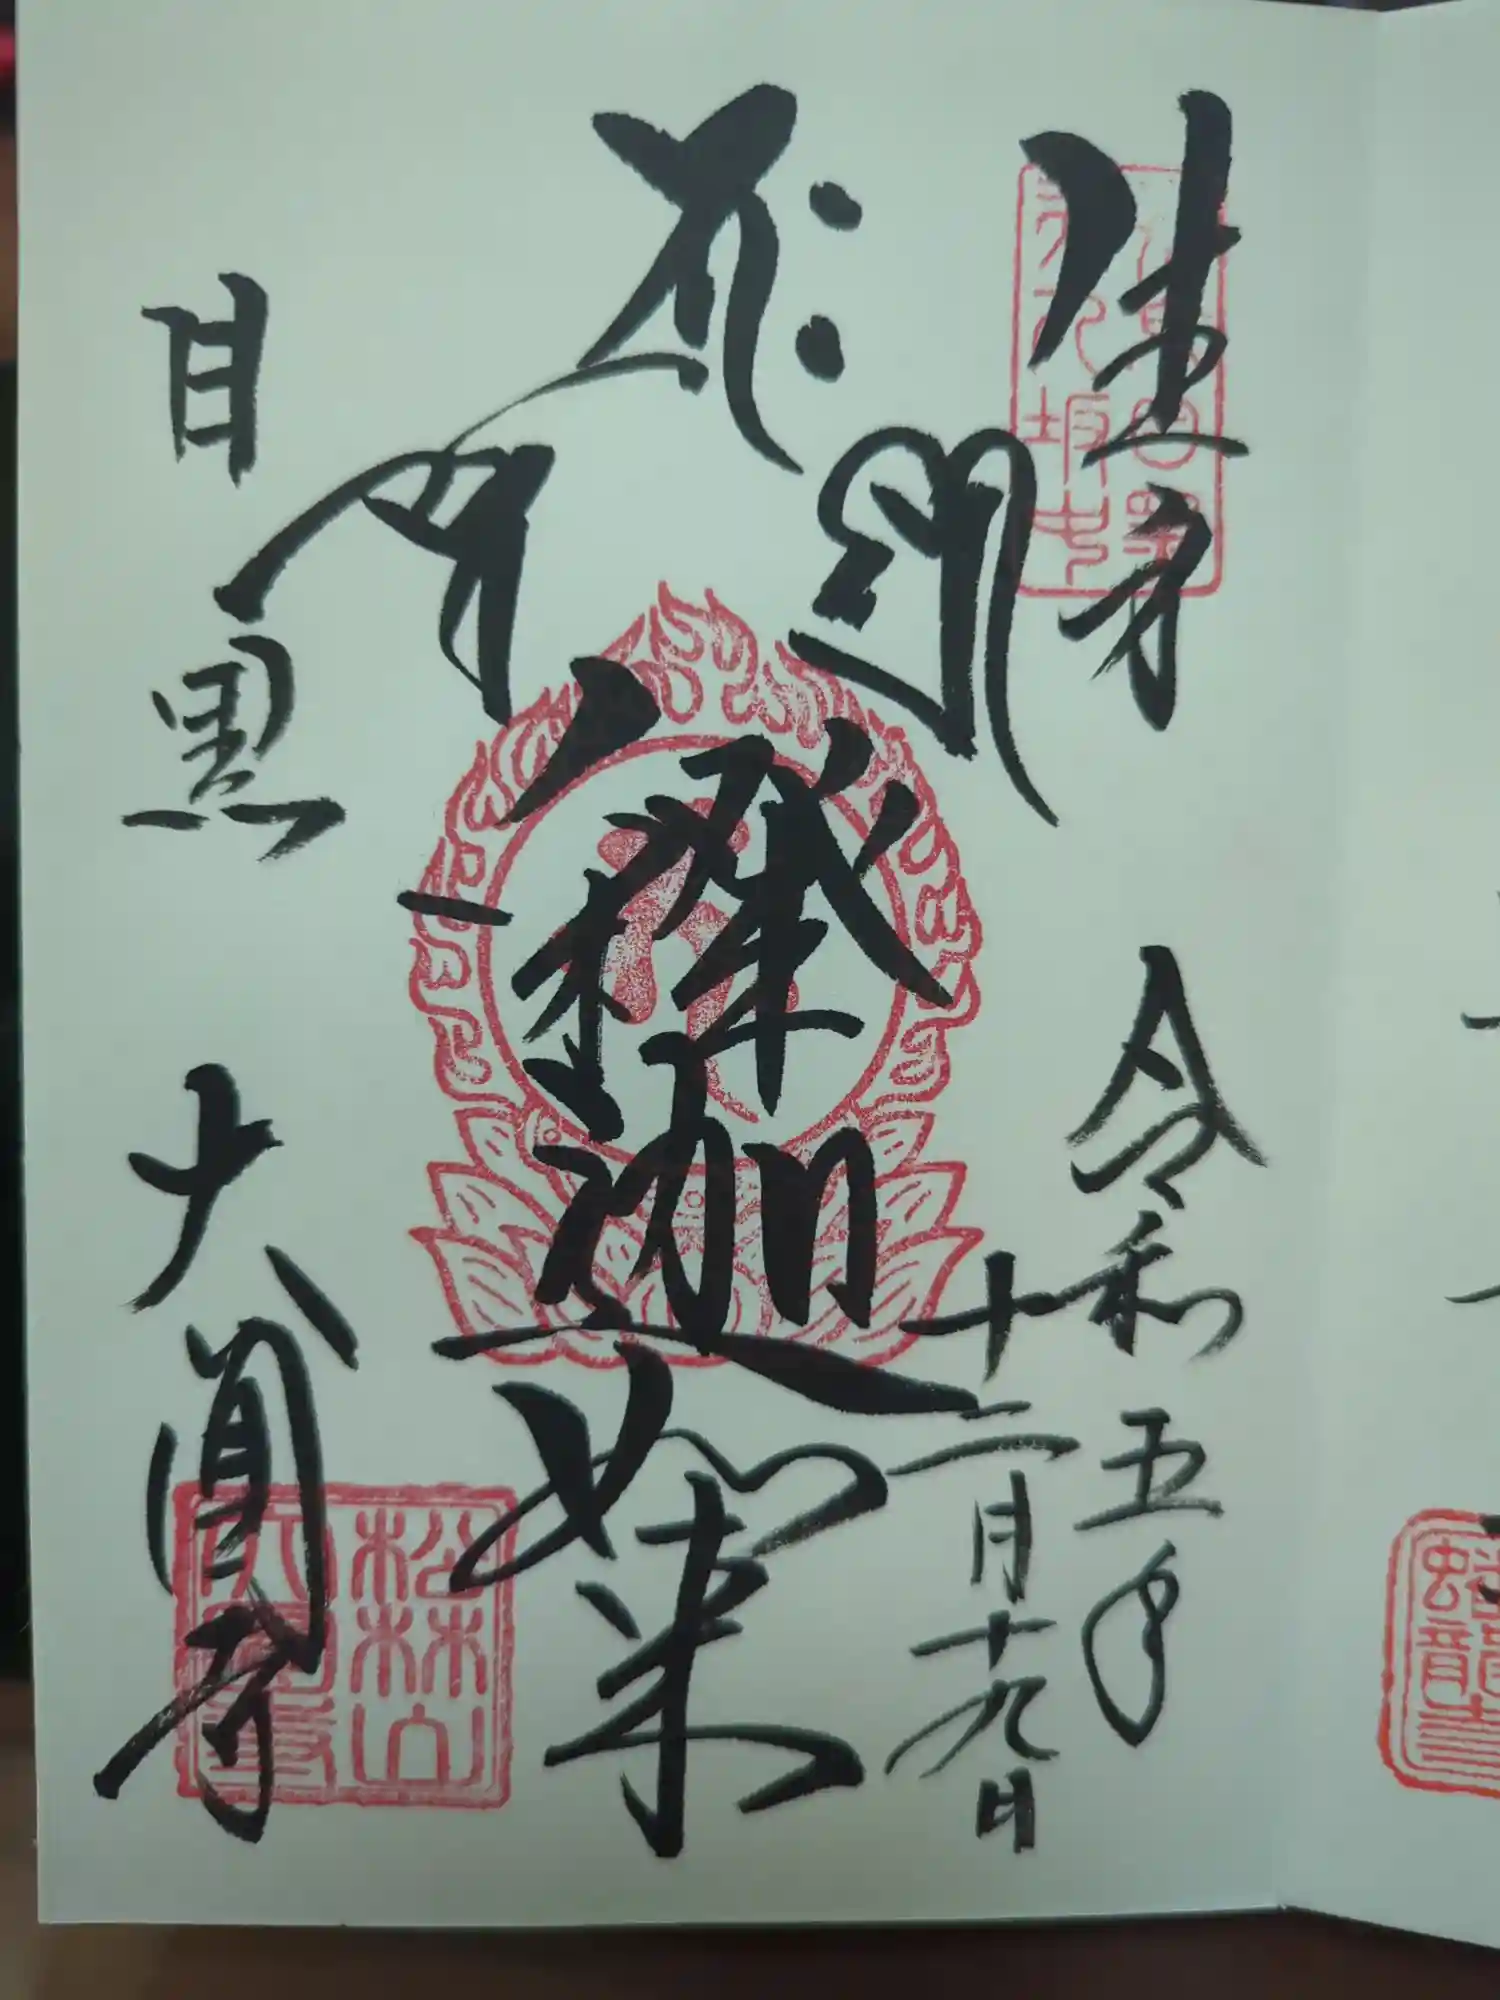 生身
令和五年
十二月十九日
釋迦如来
目黒 大圓寺
松林山
大圓寺